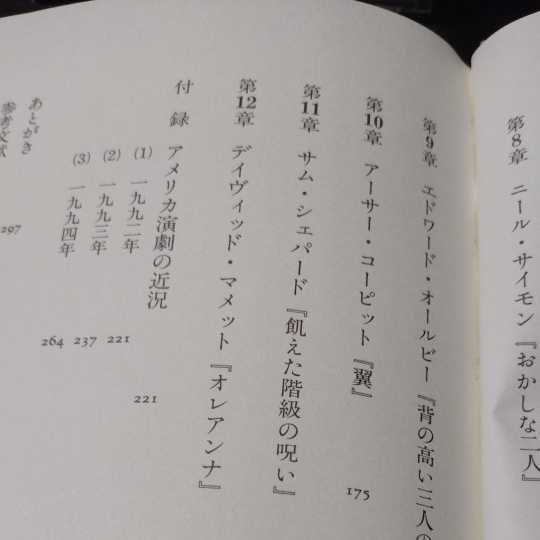 第8章 ニール・サイモン『おかしな二人』
第9章 エドワード・オールビー『背の高い三人の
第10章 アーサー・コーピット『翼』 175
第11章 サム・シェパード『飢えた階級の呪い』
第12章 デイヴィッド・マメット『オレアンナ』
付録 アメリカ演劇の近況 221
(1) 一九九二年 221
(2) 一九九三年 237
(3) 一九九四年 264
あとがき 297
参考文献